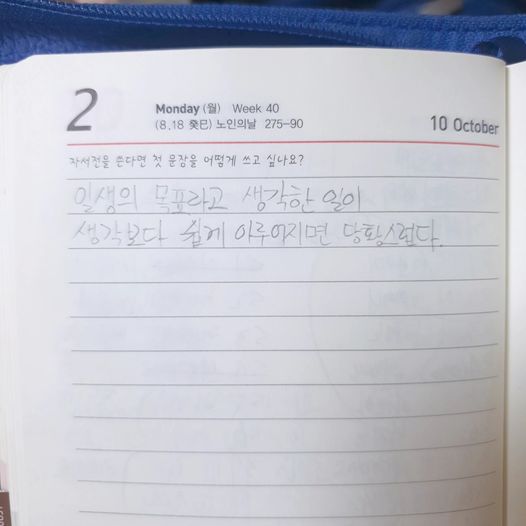 2
Monday (월) Week 40
(8.18 癸巳) 노인의날 275-90
10 October
자서전을 쓴다면 첫 문장을 어떻게 쓰고 싶나요?
일생의 목표라고 생각한 일이
생각보다 쉽게 이루어지면 당황스럽다.